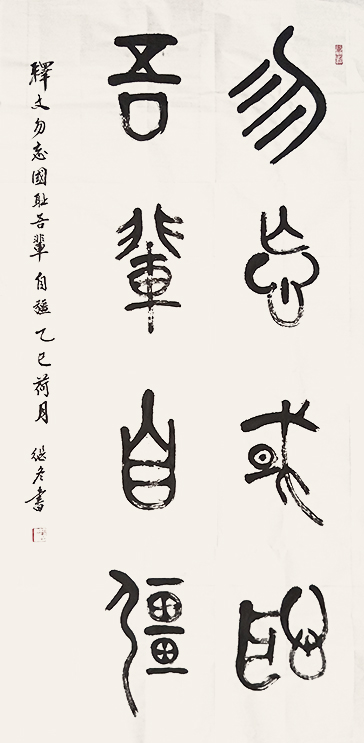 勿忘或恥
吾輩自彊
釋文勿忘國耻吾輩自強 乙巳荷月 書